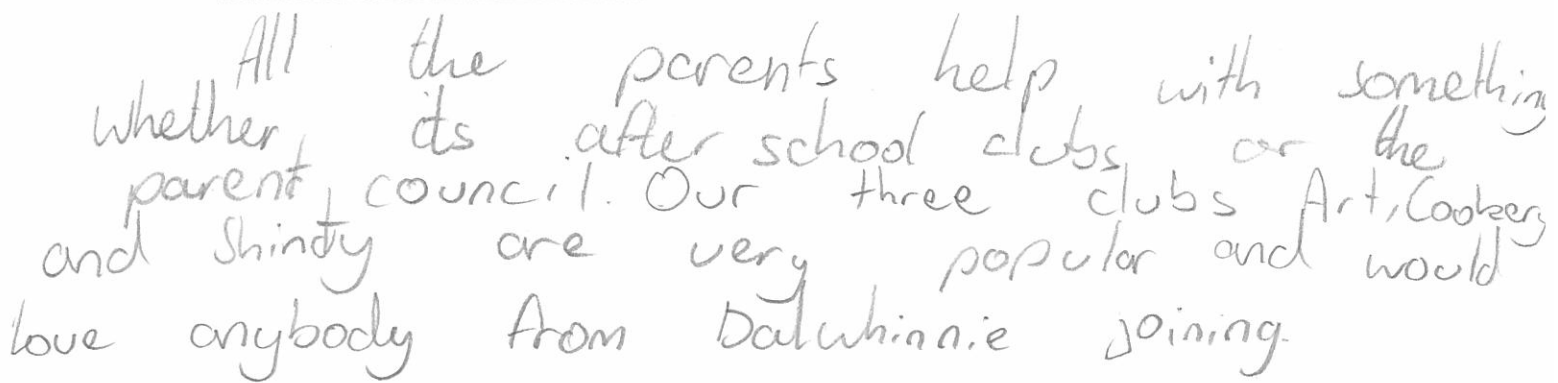 All the parents help with something
whether its after school clubs or the
parent council. Our three clubs Art, Cookery
and Shinty are very popular and would
love anybody from Dalwhinnie joining.